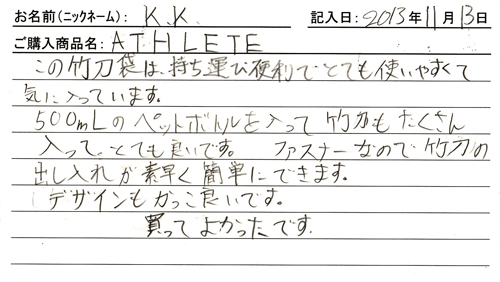 お名前(ニックネーム): K.K. 記入日: 2013年11月13日
ご購入商品名: ATHLETE
この竹刀袋は、持ち運び便利でとても使いやすくて
気に入っています。
500mLのペットボトルを入って竹刀もたくさん
入って、とても良いです。 ファスナーなので竹刀の
出し入れが素早く簡単にできます。
デザインもかっこ良いです。
買ってよかったです.